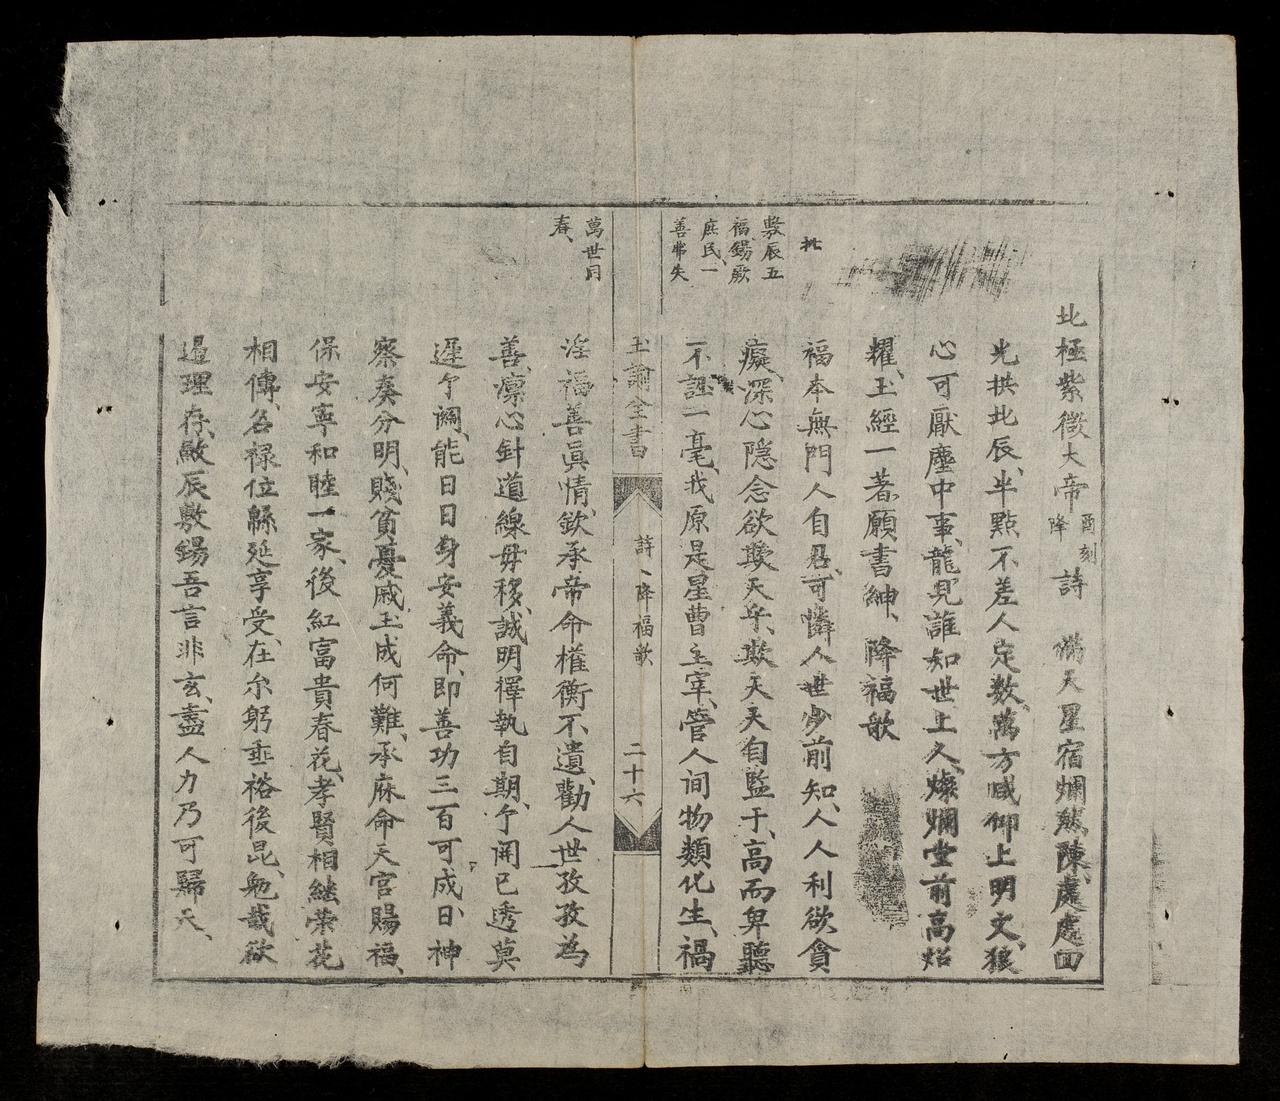 北極紫微大帝酉刻降詩 滿天星宿爛然陳、處處回
光拱北辰、半點不差人定数、萬方咸仰上明文、狼
心可厭塵中事、龍見誰知世上久、燦爛堂前高炤
耀、玉經一著願書紳、降福歌
福本無門人自召、可憐人世少前知、人人利欲貪
癡深、心隐念欲欺天乎、欺天天自監于、高而卑聽
不誣一毫、我原是星曹主宰、管人间物類化生、禍
北
敷辰五
福錫厥
庶民、一
善弗失
玉諭全書
詩、降福歌
二十六
淫福善眞情、欽承帝命權衡不遺、勸人世孜孜為
善、凛心針道線毋移、誠明擇執自期、兮開已透莫
遲兮關、能日日身安義命、即善功三百可成、日神
察奏分明、賤貧憂戚玉成何難、承庥命天官賜福、
保安寧和睦一家、後紅富貴春花、孝賢相継荣花
相傳、名禄位綿延享受、在尔躬垂裕後昆、勉哉欽
過理存、敞辰敷錫吾言非玄、盡人力乃可歸天、
萬世同
春、